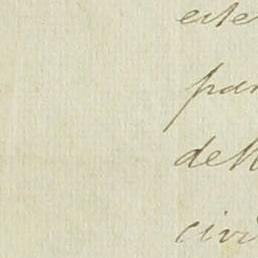 este
par
dell
civi